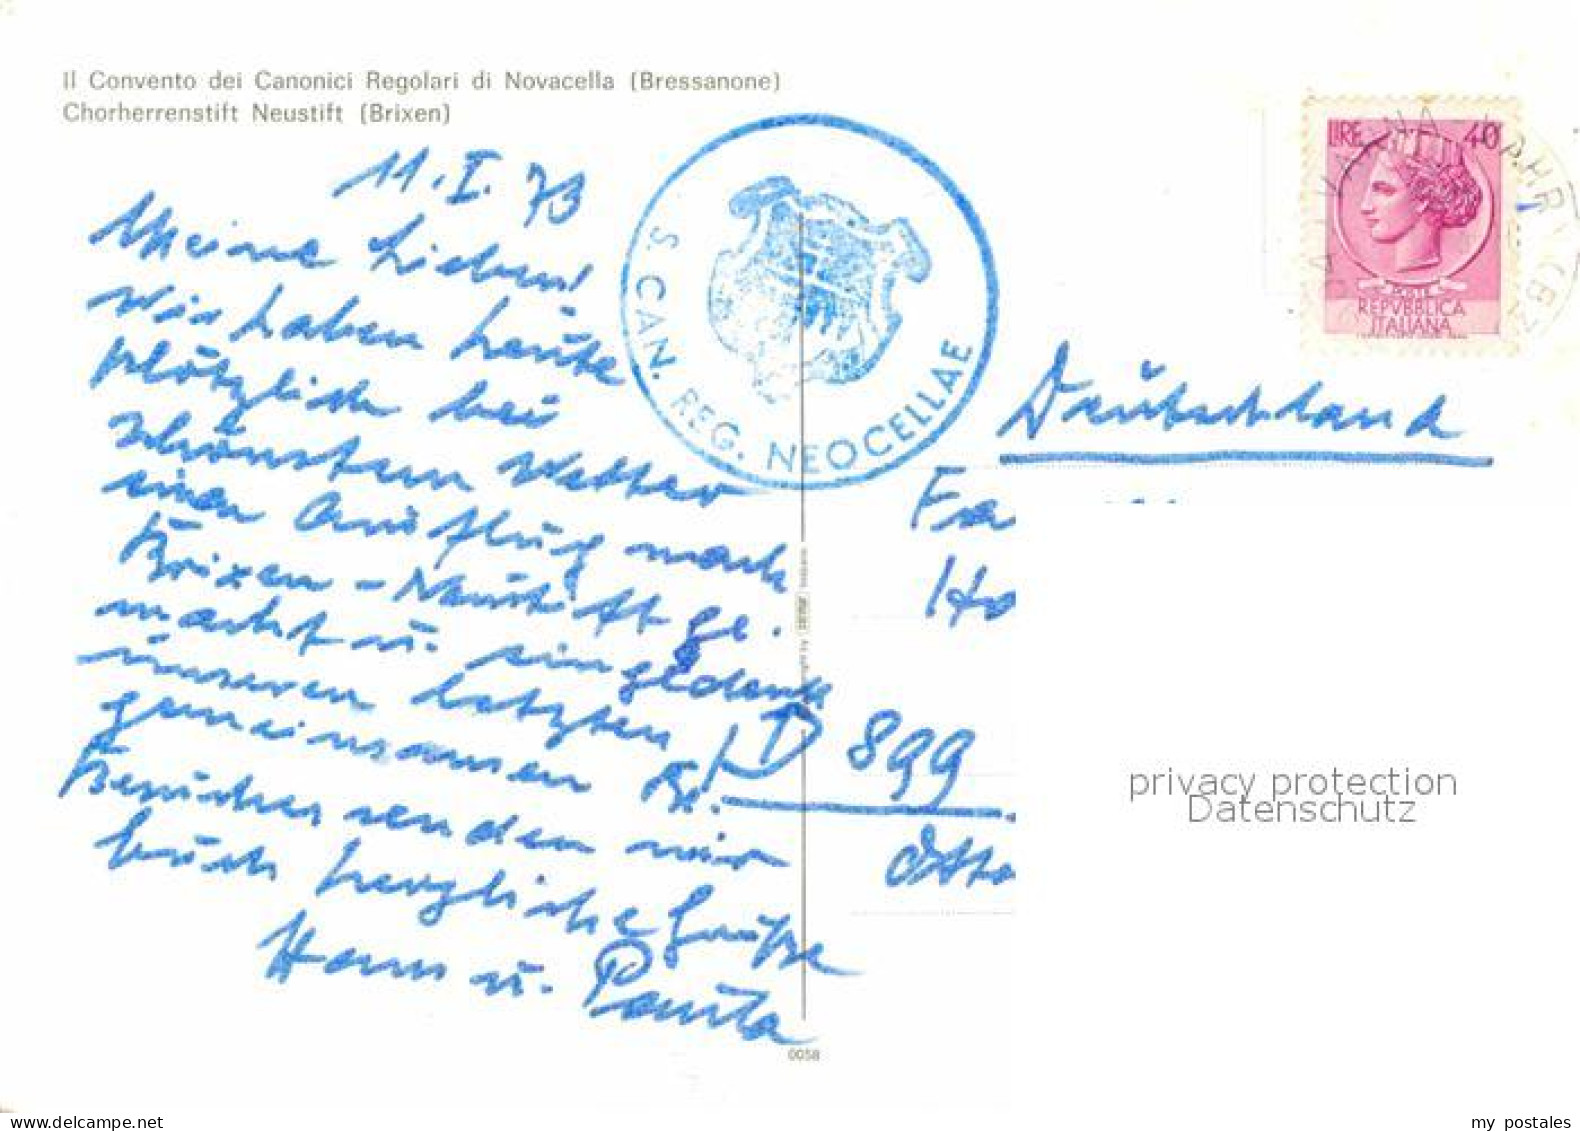 Il Convento dei Canonici Regolari di Novacella (Bressanone)
Chorherrenstift Neustift (Brixen)
11. I. 73
Meine Lieben!
Wir haben heute
plötzlich bei
schönstem Wetter
einen Ausflug nach
Brixen-Neustift ge-
macht u. eingedenk
unseren letzten
gemeinsamen
Besuches senden wir
Euch herzliche Grüße
Hans u. Paula
S. CAN. REG. NEOCELLAE
LIRE 40
POSTE
REPVBBLICA
ITALIANA
Deutschland
Fa
Ho
D 899
Otto
privacy protection
Datenschutz
0058
my postales